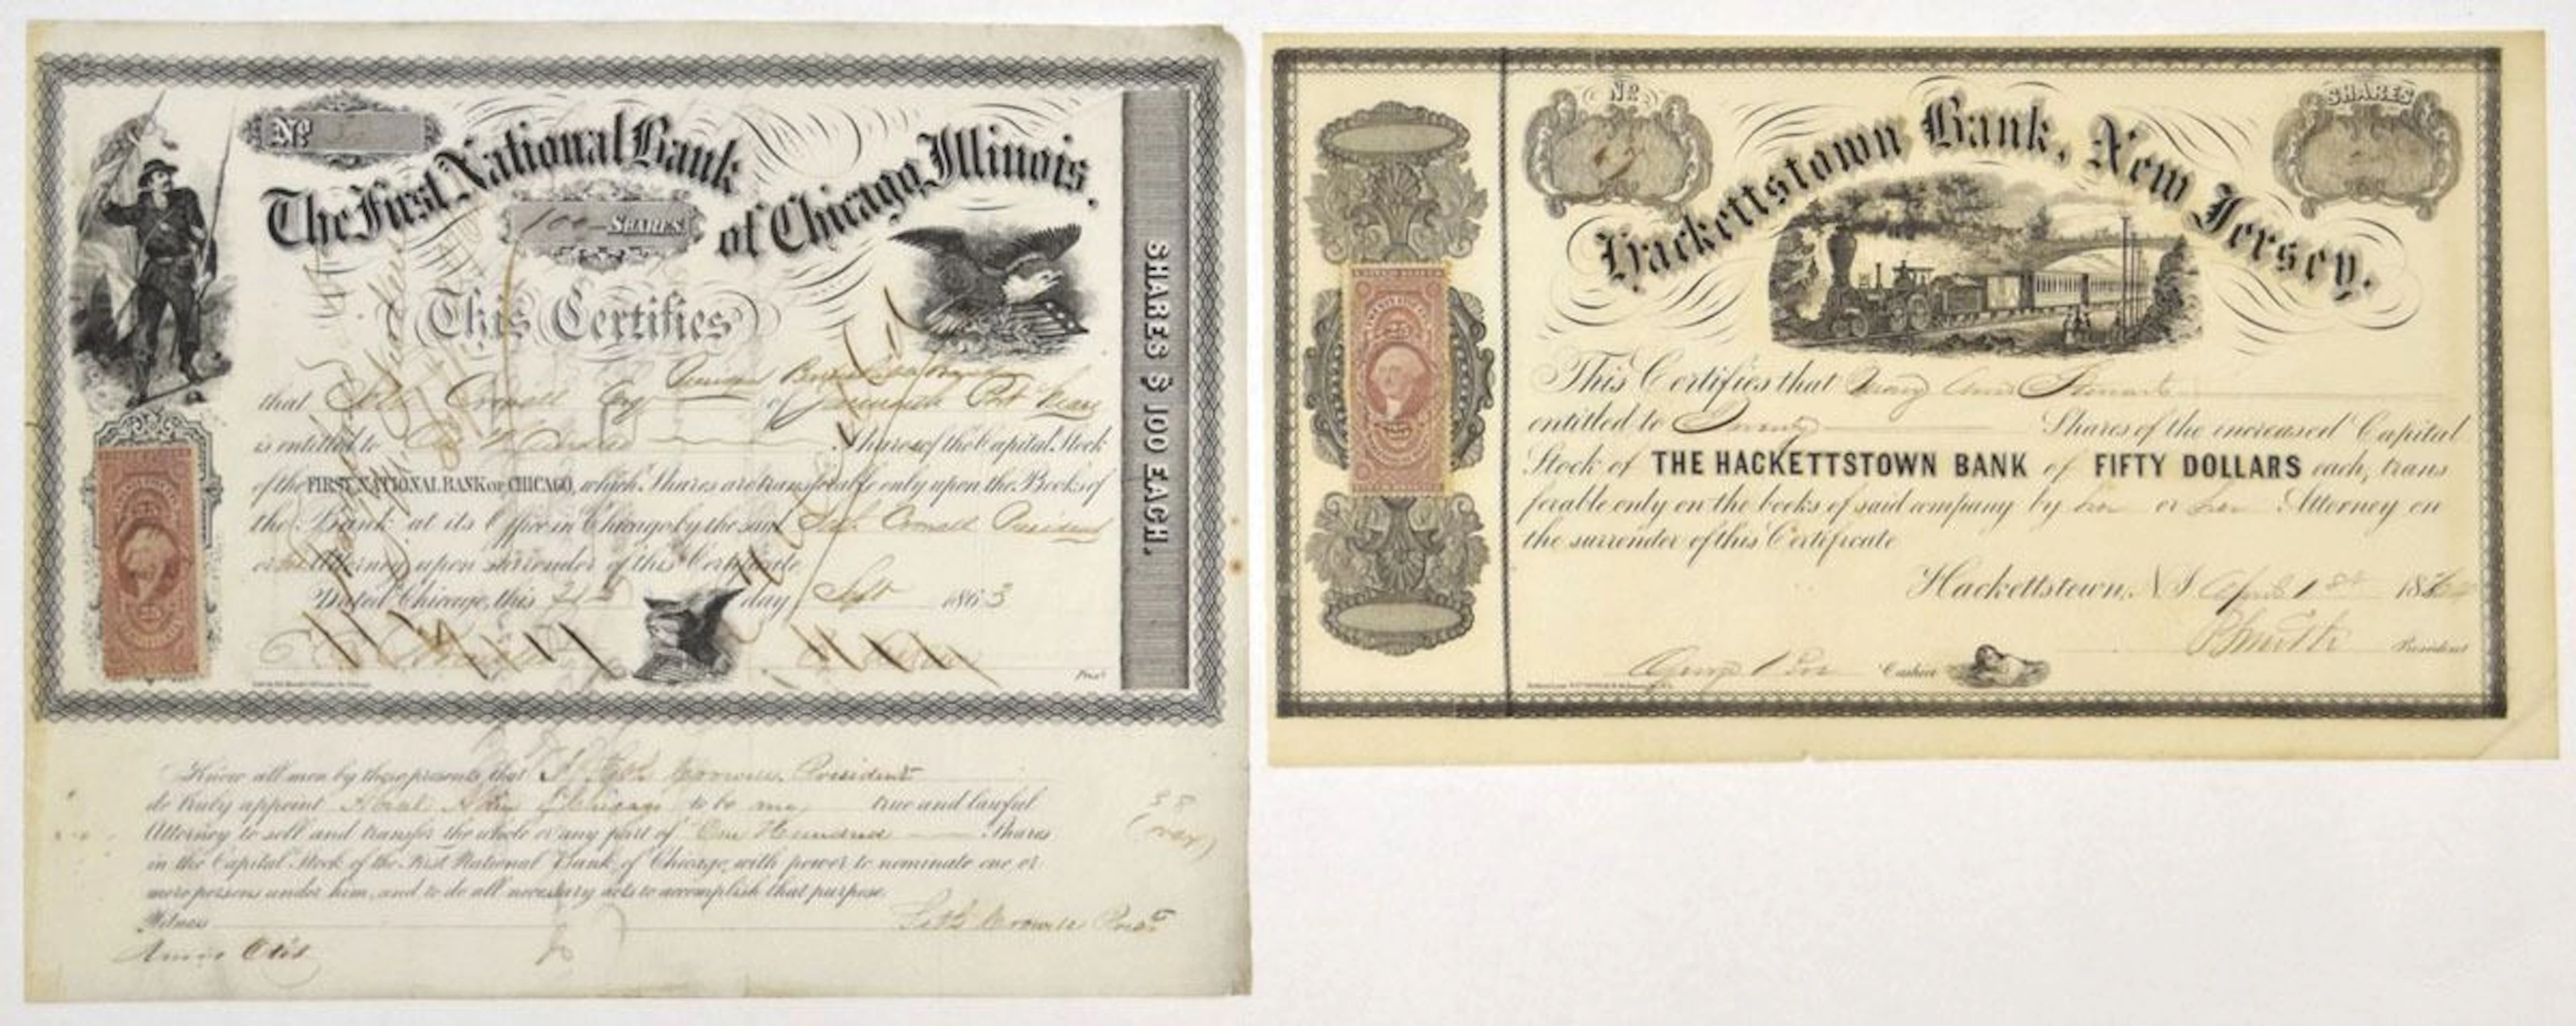 Nº
The First National Bank
of Chicago, Illinois.
100 SHARES.
This Certifies
that Seth Crowell
is entitled to One Hundred Shares of the Capital Stock
of the FIRST NATIONAL BANK OF CHICAGO, which Shares are transferable only upon the Books of
the Bank at its Office in Chicago by the said President
or Attorney upon surrender of this Certificate
Dated Chicago, this 21st day Sept 1863
Prest
SHARES $ 100 EACH.
Know all men by these presents, that I Seth Crowell President
do truly appoint of Chicago to be my true and lawful
Attorney to sell and transfer the whole or any part of One Hundred Shares
in the Capital Stock of the First National Bank of Chicago, with power to nominate one or
more persons under him, and to do all necessary acts to accomplish that purpose.
Witness
Seth Crowell Prest
Amos Otis
Nº
SHARES
Hackettstown Bank, New Jersey.
This Certifies that Mary Ann Stewart
entitled to Twenty Shares of the increased Capital
Stock of THE HACKETTSTOWN BANK of FIFTY DOLLARS each, trans
ferable only on the books of said company by her or her Attorney on
the surrender of this Certificate
Hackettstown, N J. April 1st 18
Smith President
Cashier